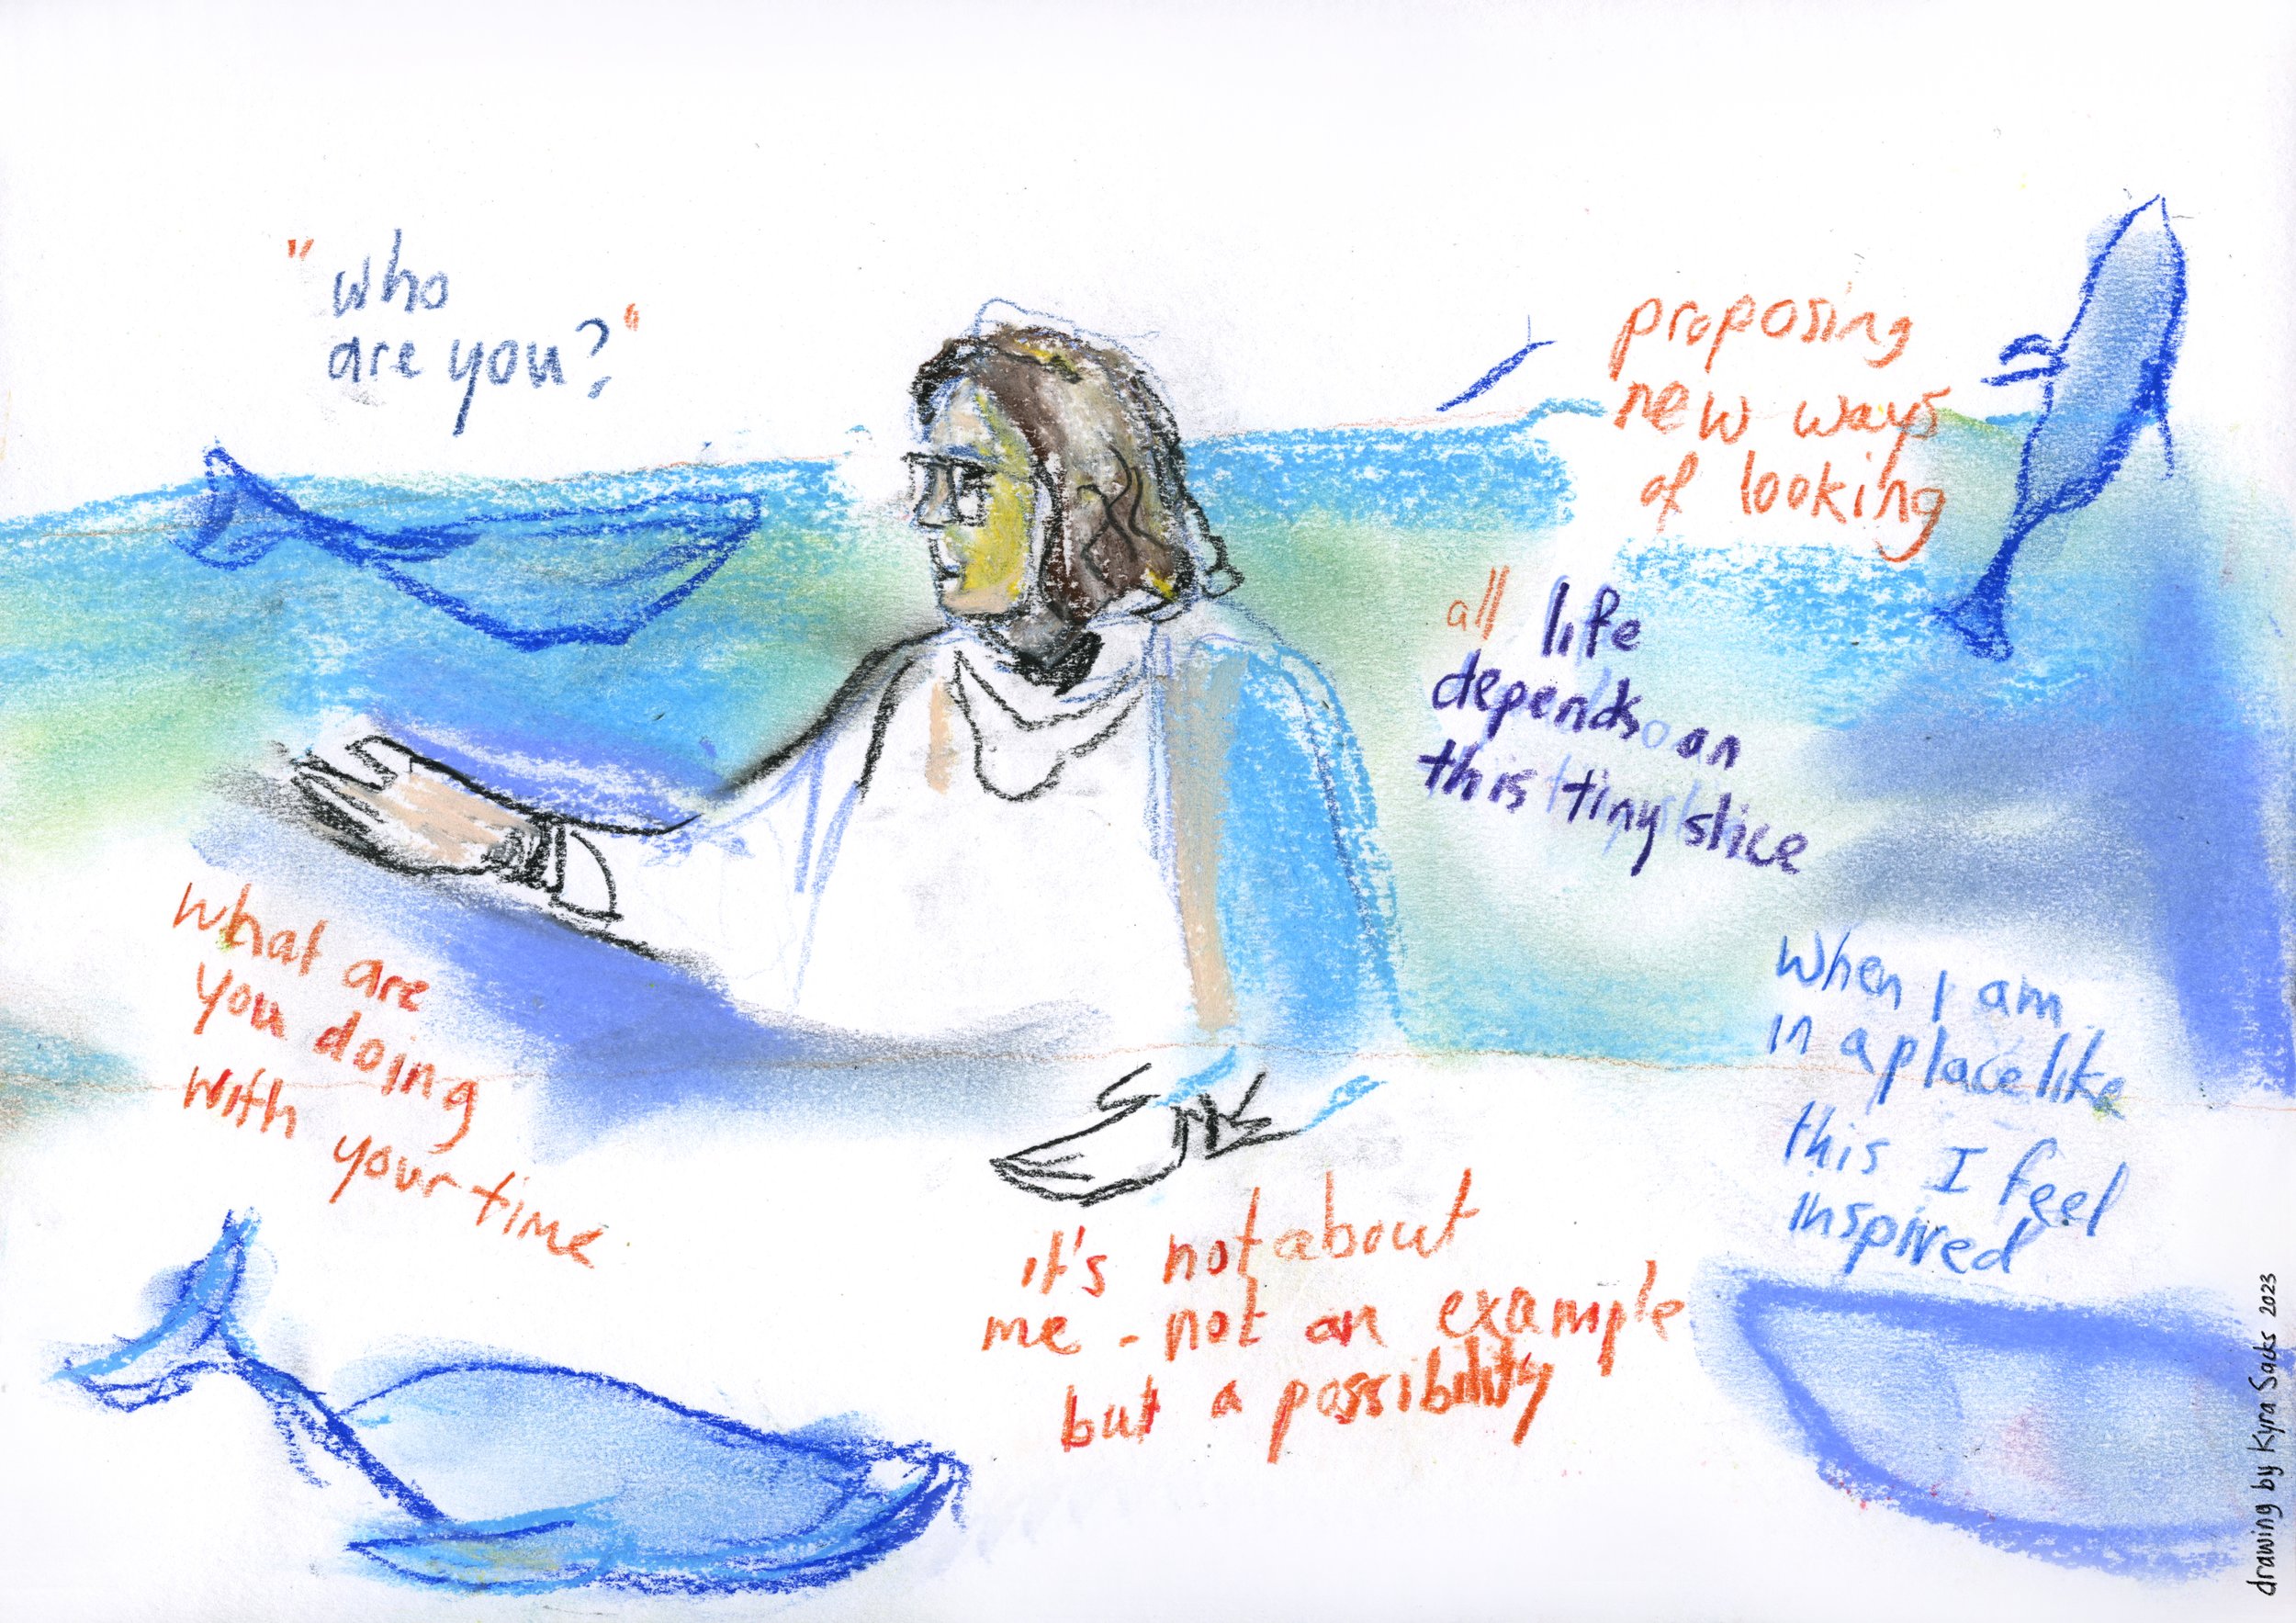 "who
are you?"
proposing
new ways
of looking
all life
depends on
this tiny slice
what are
you doing
with your time
When I am
in a place like
this I feel
inspired
it's not about
me - not an example
but a possibility
drawing by Kyra Sacks 2023